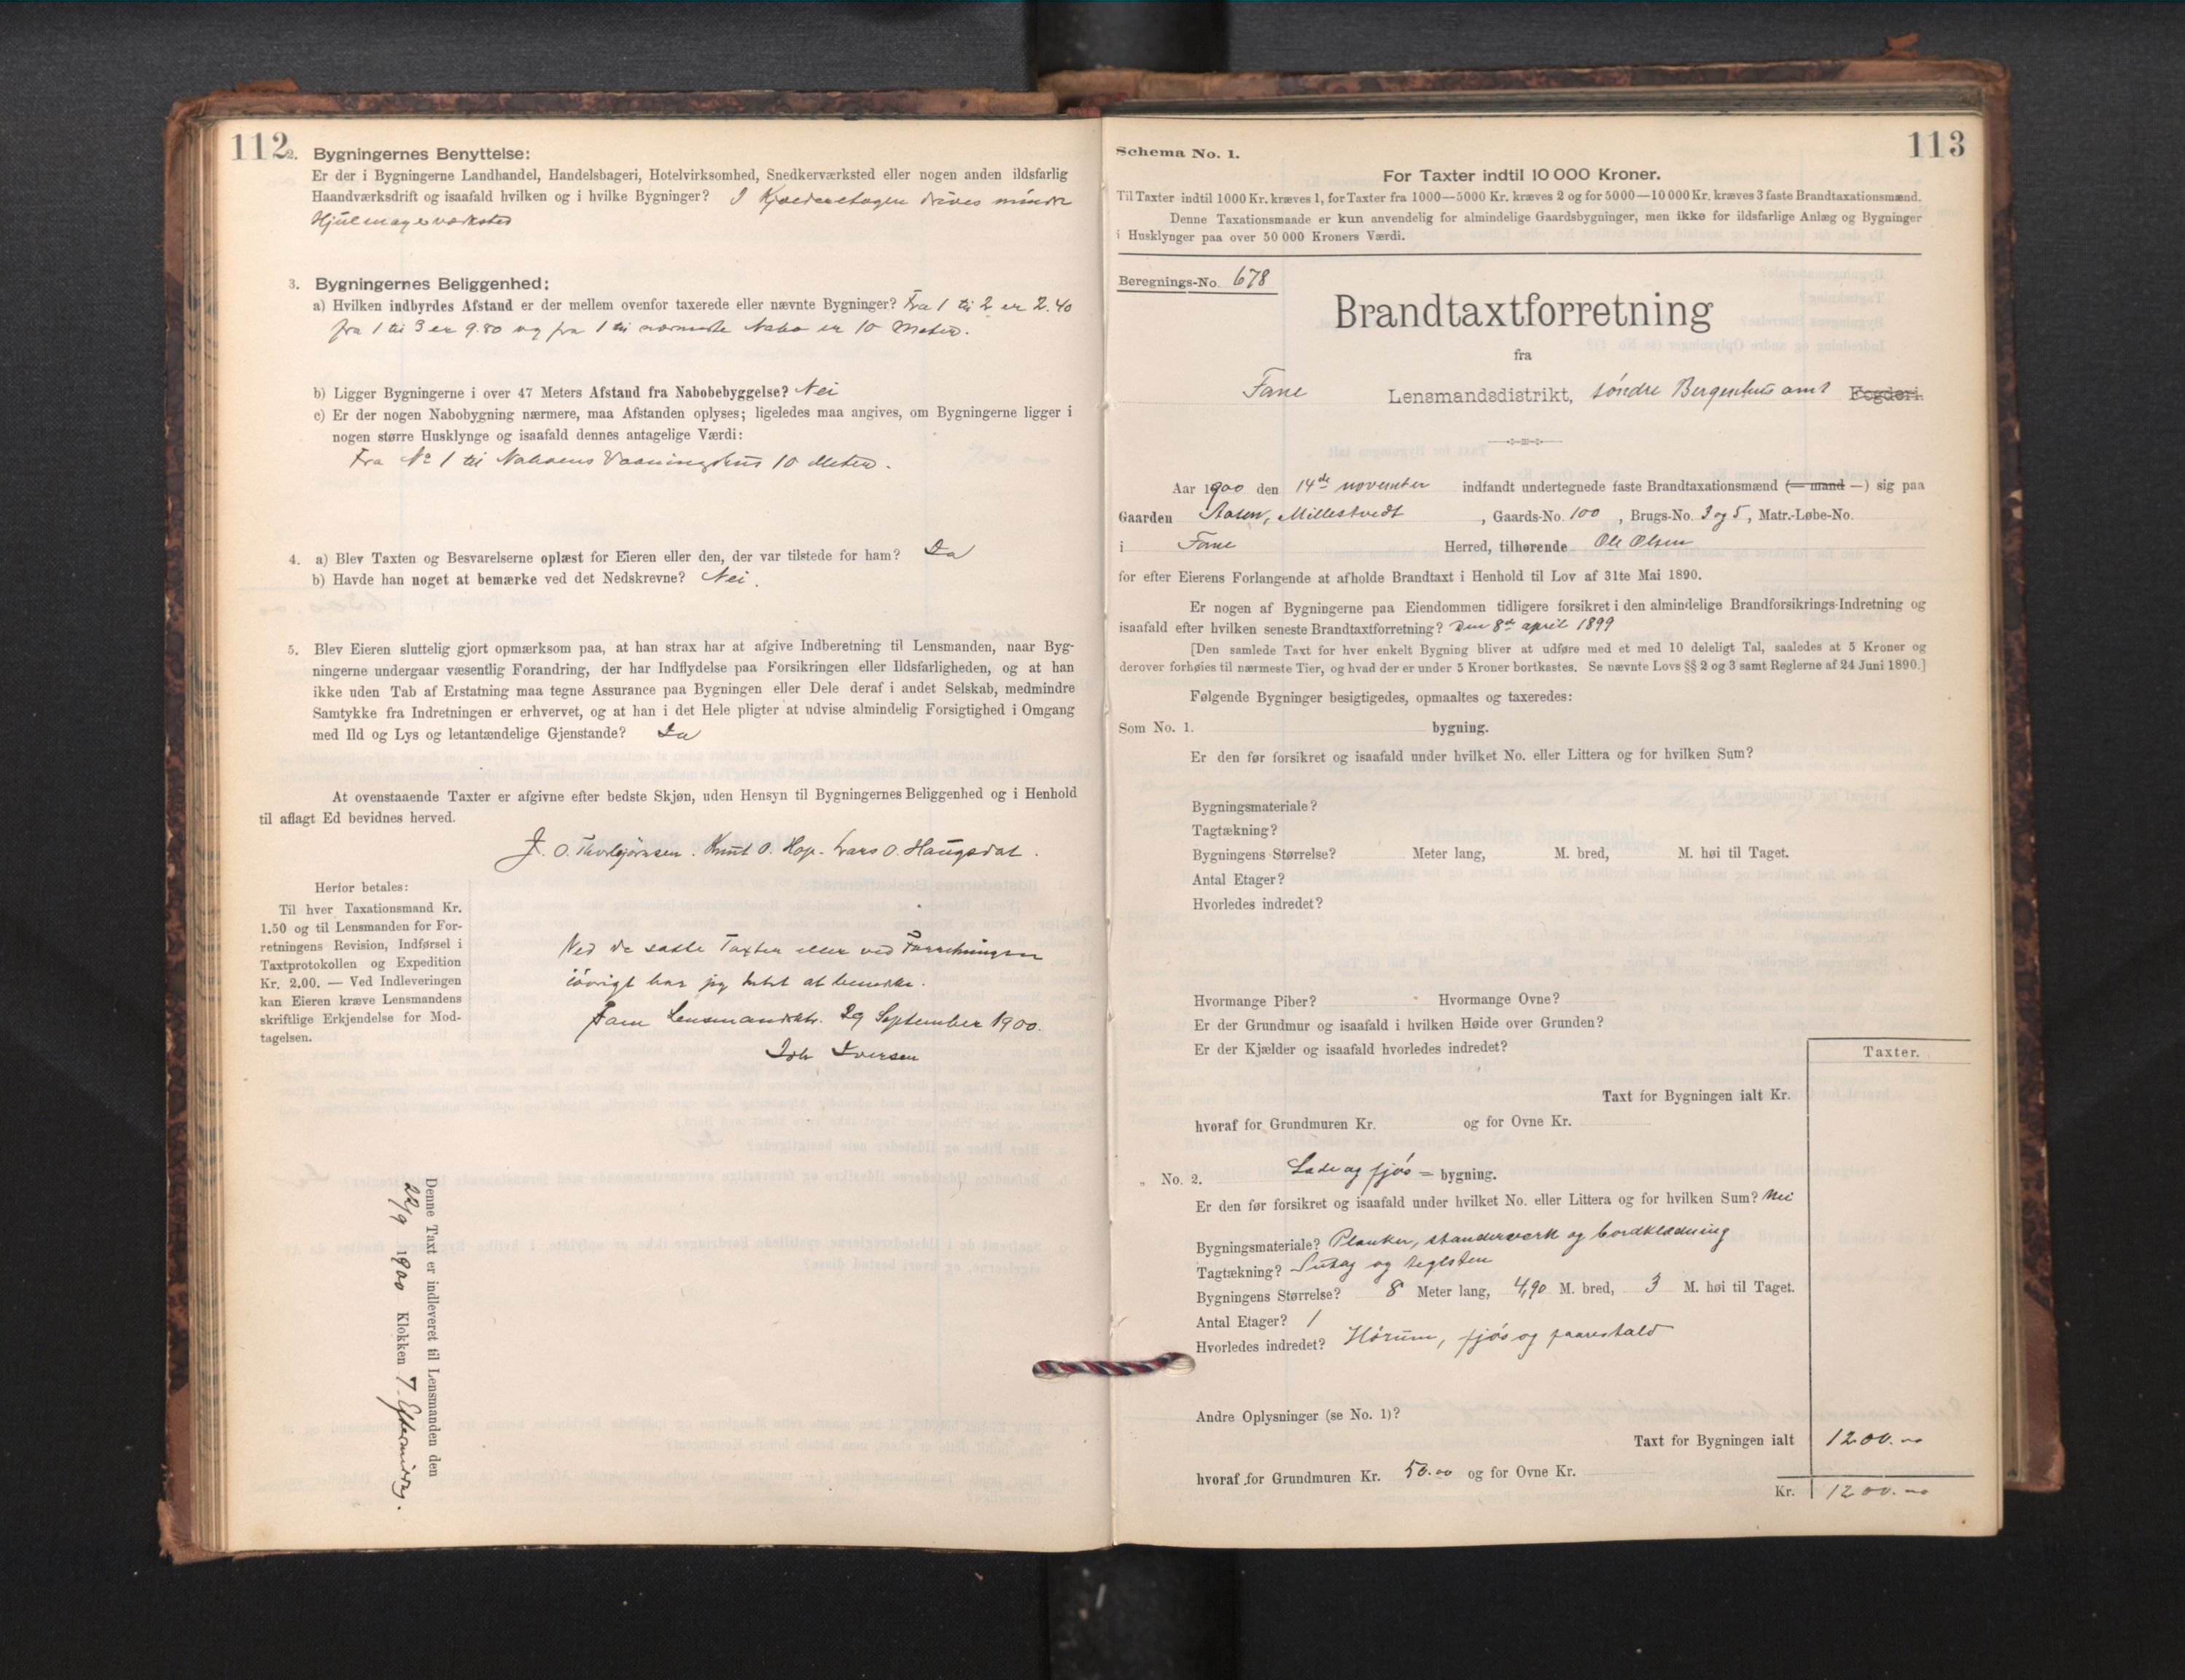 112
2. Bygningernes Benyttelse:
Er der i Bygningerne Landhandel, Handelsbageri, Hotelvirksomhed, Snedkerværksted eller nogen anden ildsfarlig
Haandværksdrift og isaafald hvilken og i hvilke Bygninger? I Kjælderetagen drives mindre
Hjulmagerværksted
3. Bygningernes Beliggenhed:
a) Hvilken indbyrdes Afstand er der mellem ovenfor taxerede eller nævnte Bygninger? Fra 1 til 2 er 2.40
fra 1 til 3 er 9.80 og fra 1 til nærmeste Nabo er 10 Meter.
b) Ligger Bygningerne i over 47 Meters Afstand fra Nabobebyggelse? Nei
c) Er der nogen Nabobygning nærmere, maa Afstanden oplyses; ligeledes maa angives, om Bygningerne ligger i
nogen større Husklynge og isaafald dennes antagelige Værdi:
Fra No 1 til Naboens Vaaningshus 10 Meter.
4. a) Blev Taxten og Besvarelserne oplæst for Eieren eller den, der var tilstede for ham? Ja
b) Havde han noget at bemærke ved det Nedskrevne? Nei.
5. Blev Eieren sluttelig gjort opmærksom paa, at han strax har at afgive Indberetning til Lensmanden, naar Byg-
ningerne undergaar væsentlig Forandring, der har Indflydelse paa Forsikringen eller Ildsfarligheden, og at han
ikke uden Tab af Erstatning maa tegne Assurance paa Bygningen eller Dele deraf i andet Selskab, medmindre
Samtykke fra Indretningen er erhvervet, og at han i det Hele pligter at udvise almindelig Forsigtighed i Omgang
med Ild og Lys og letantændelige Gjenstande? Ja
At ovenstaaende Taxter er afgivne efter bedste Skjøn, uden Hensyn til Bygningernes Beliggenhed og i Henhold
til aflagt Ed bevidnes herved.
J. O. Thorbjørnsen. Knut O. Hop. Lars O. Haugsdal.
Herfor betales:
Til hver Taxationsmand Kr.
1.50 og til Lensmanden for For-
retningens Revision, Indførsel i
Taxtprotokollen og Expedition
Kr. 2.00. — Ved Indleveringen
kan Eieren kræve Lensmandens
skriftlige Erkjendelse for Mod-
tagelsen.
Ved de satte Taxter eller ved Forretningen
iøvrigt har jeg intet at bemærke.
Fane Lensmandsktr. 29 September 1900.
Joh Iversen
Denne Taxt er indleveret til Lensmanden den
22/9 1900 Klokken 7 Eftermiddag.
113
Schema No. 1.
For Taxter indtil 10 000 Kroner.
Til Taxter indtil 1000 Kr. kræves 1, for Taxter fra 1000—5000 Kr. kræves 2 og for 5000—10 000 Kr. kræves 3 faste Brandtaxationsmænd.
Denne Taxationsmaade er kun anvendelig for almindelige Gaardsbygninger, men ikke for ildsfarlige Anlæg og Bygninger
i Husklynger paa over 50 000 Kroners Værdi.
Beregnings-No. 678
Brandtaxtforretning
fra
Fane Lensmandsdistrikt, søndre Bergenhus amt Fogderi.
Aar 1900 den 14de november indfandt undertegnede faste Brandtaxationsmænd (— mand —) sig paa
Gaarden Aasen, Millestvedt, Gaards-No. 100, Brugs-No. 3 og 5, Matr.-Løbe-No.
i Fane Herred, tilhørende Ole Olsen
for efter Eierens Forlangende at afholde Brandtaxt i Henhold til Lov af 31te Mai 1890.
Er nogen af Bygningerne paa Eiendommen tidligere forsikret i den almindelige Brandforsikrings-Indretning og
isaafald efter hvilken seneste Brandtaxtforretning? Den 8de april 1899
[Den samlede Taxt for hver enkelt Bygning bliver at udføre med et med 10 deleligt Tal, saaledes at 5 Kroner og
derover forhøies til nærmeste Tier, og hvad der er under 5 Kroner bortkastes. Se nævnte Lovs §§ 2 og 3 samt Reglerne af 24 Juni 1890.]
Følgende Bygninger besigtigedes, opmaaltes og taxeredes:
Som No. 1. bygning.
Er den før forsikret og isaafald under hvilket No. eller Littera og for hvilken Sum?
Bygningsmateriale?
Tagtækning?
Bygningens Størrelse? Meter lang, M. bred, M. høi til Taget.
Antal Etager?
Hvorledes indredet?
Hvormange Piber? Hvormange Ovne?
Er der Grundmur og isaafald i hvilken Høide over Grunden?
Er der Kjælder og isaafald hvorledes indredet?
Taxter.
Taxt for Bygningen ialt Kr.
hvoraf for Grundmuren Kr. og for Ovne Kr.
„ No. 2. Lade og fjøs = bygning.
Er den før forsikret og isaafald under hvilket No. eller Littera og for hvilken Sum? Nei
Bygningsmateriale? Planker, standerverk og bordklædning
Tagtækning? Sutag og teglsten
Bygningens Størrelse? 8 Meter lang, 4,90 M. bred, 3 M. høi til Taget.
Antal Etager? 1
Hvorledes indredet? Hørum, fjøs og faarestald
Andre Oplysninger (se No. 1)?
Taxt for Bygningen ialt 1200.00
hvoraf for Grundmuren Kr. 50.00 og for Ovne Kr.
Kr. 1200.00